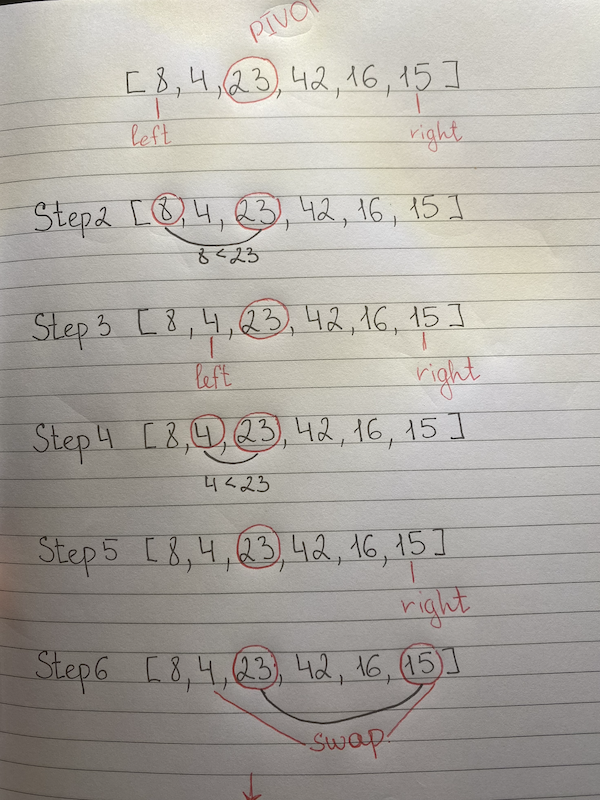 PIVOT
[8, 4, 23, 42, 16, 15]
left right
Step2 [8, 4, 23, 42, 16, 15]
8<23
Step3 [8, 4, 23, 42, 16, 15]
left right
Step4 [8, 4, 23, 42, 16, 15]
4<23
Step5 [8, 4, 23, 42, 16, 15]
right
Step6 [8, 4, 23, 42, 16, 15]
swap